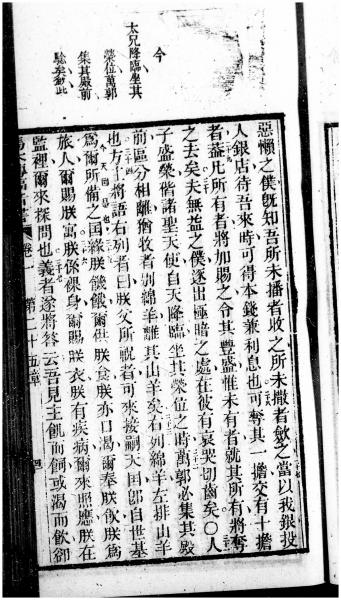 今
太兄降臨坐其
榮位萬郭
集其殿前
驗矣欽此
惡懶之僕旣知吾所未播者收之所未撒者斂之當以我銀投
人銀店待吾來時可得本錢兼利息也可奪其一擔交有十擔
者葢凡所有者將加賜之令其豐盛惟未有者就其所有將奪
之去矣夫無益之僕逐出極暗之處在彼有哀哭切齒矣〇人
子盛榮偕諸聖天使自天降臨坐其榮位之時萬郭必集其殿
前區分相離猶牧者别綿羊離其山羊矣右列綿羊左排山羊
也方王將語右列者曰朕父所祝者可來接嗣天國卽自世基
爲爾所備之國緣朕饑餓爾供朕食朕亦口渴爾奉朕飲朕爲
旅人爾賜朕寓朕係裸身爾賜朕衣朕有疾病爾來照應朕在
監裡爾來探問也義者遂將答云吾見主飢而飼或渴而飲卻
卷一 第二十五章